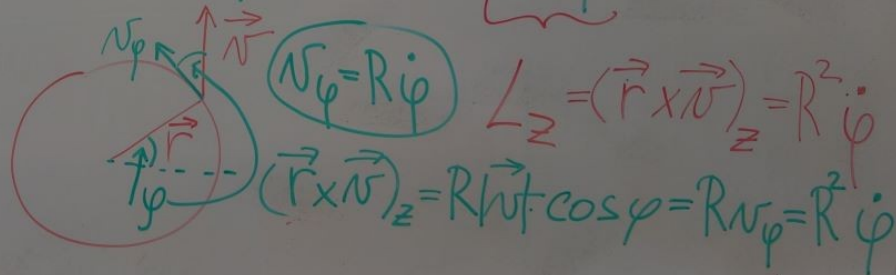 v_φ v⃗
v_φ = Rφ̇
L_z = (r⃗ × v⃗)_z = R² φ̇
r⃗
φ
(r⃗ × v⃗)_z = R|v⃗| cos φ = R v_φ = R² φ̇